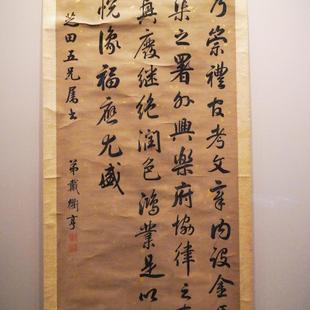 乃崇禮官考文章内設金
渠之署外興樂府協律之
興廢継絶潤色鴻業是以
悅豫福應尤盛
芝田五兄屬書
弟戴衢亨